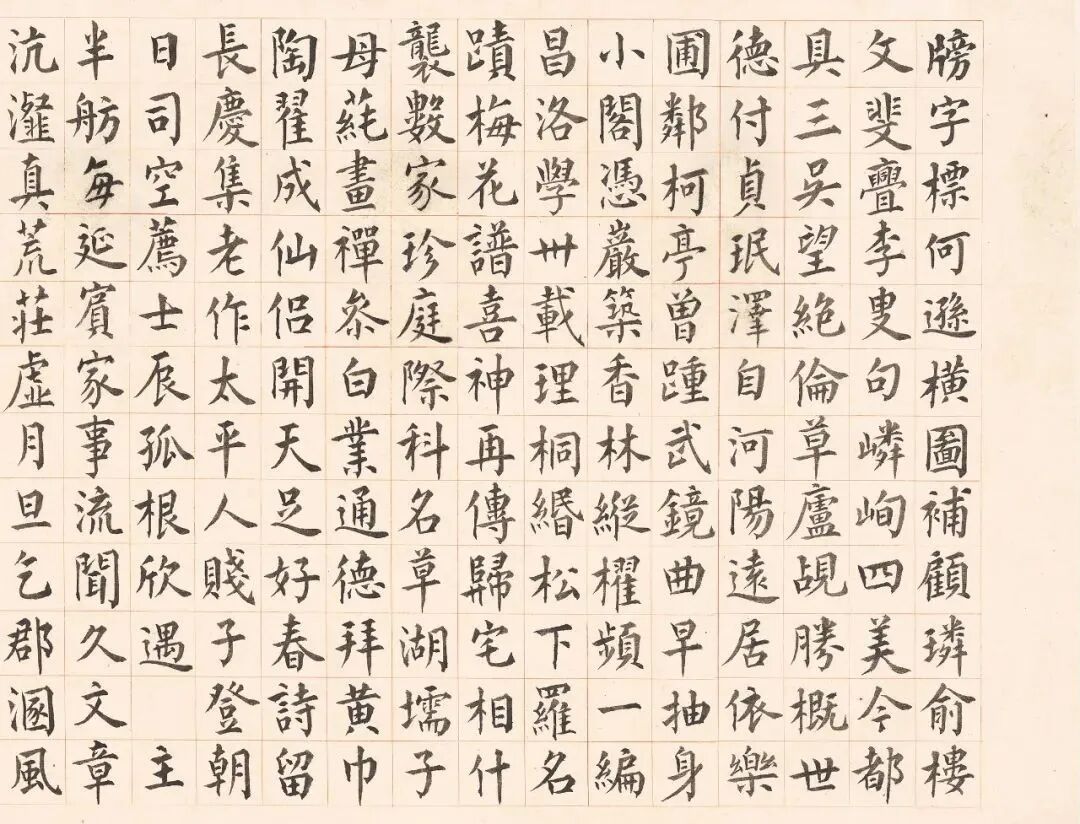 牓字標何遜橫圖補顧璘俞樓
文斐亹李叟句嶙峋四美今都
具三吳望絕倫草廬覘勝概世
德付貞珉澤自河陽遠居依樂
圃鄰柯亭曾踵武鏡曲早抽身
小閣憑巖築香林縱櫂頻一編
昌洛學卅載理桐緡松下羅名
蹟梅花譜喜神再傳歸宅相什
襲數家珍庭際科名草湖壖子
母蒓畫禪參白業通德拜黃巾
陶翟成仙侶開天足好春詩留
長慶集老作太平人賤子登朝
日司空薦士辰孤根欣遇 主
半舫每延賓家事流聞久文章
沆瀣真荒莊虛月旦乞郡溷風